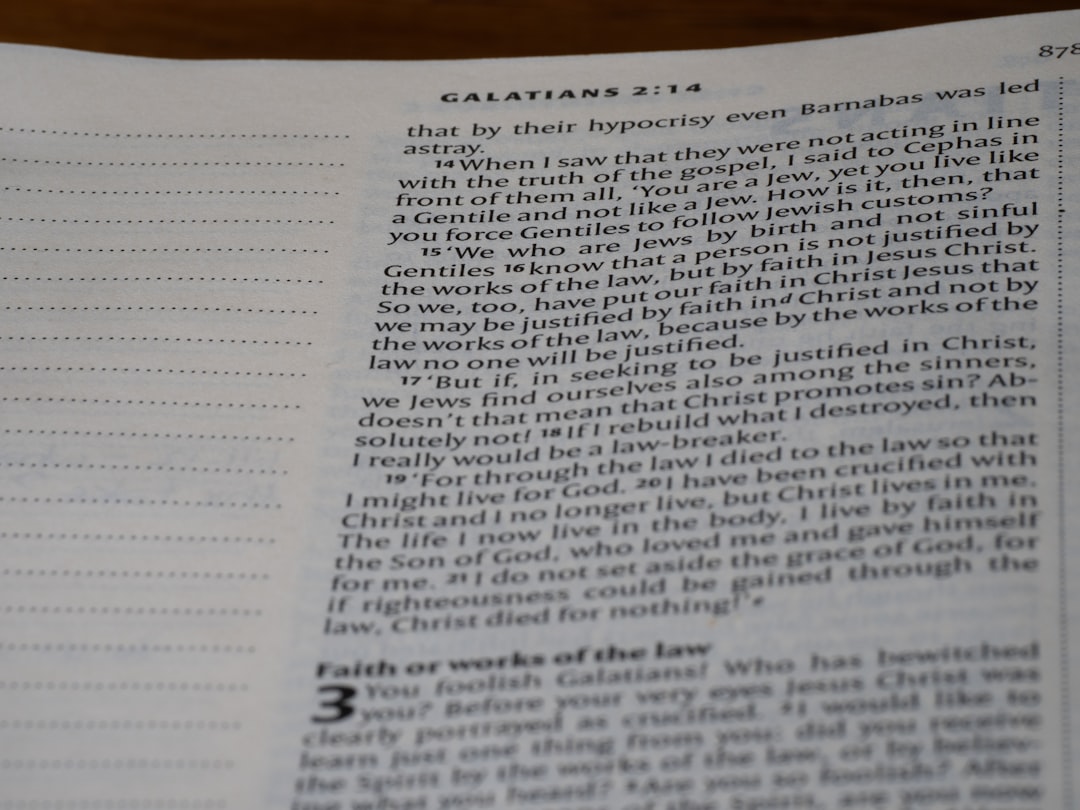 878
GALATIANS 2:14
that by their hypocrisy even Barnabas was led
astray.
14 When I saw that they were not acting in line
with the truth of the gospel, I said to Cephas in
front of them all, ‘You are a Jew, yet you live like
a Gentile and not like a Jew. How is it, then, that
you force Gentiles to follow Jewish customs?
15 ‘We who are Jews by birth and not sinful
Gentiles 16 know that a person is not justified by
the works of the law, but by faith in Jesus Christ.
So we, too, have put our faith in Christ Jesus that
we may be justified by faith in d Christ and not by
the works of the law, because by the works of the
law no one will be justified.
17 ‘But if, in seeking to be justified in Christ,
we Jews find ourselves also among the sinners,
doesn’t that mean that Christ promotes sin? Ab-
solutely not! 18 If I rebuild what I destroyed, then
I really would be a law-breaker.
19 ‘For through the law I died to the law so that
I might live for God. 20 I have been crucified with
Christ and I no longer live, but Christ lives in me.
The life I now live in the body, I live by faith in
the Son of God, who loved me and gave himself
for me. 21 I do not set aside the grace of God, for
if righteousness could be gained through the
law, Christ died for nothing!’
Faith or works of the law
3 You foolish Galatians! Who has bewitched
you? Before your very eyes Jesus Christ was
clearly portrayed as crucified. 2 I would like to
learn just one thing from you: did you receive
the Spirit by the works of the law, or by believ-
ing what you heard? 3 Are you so foolish? After
of the Spirit, are you now